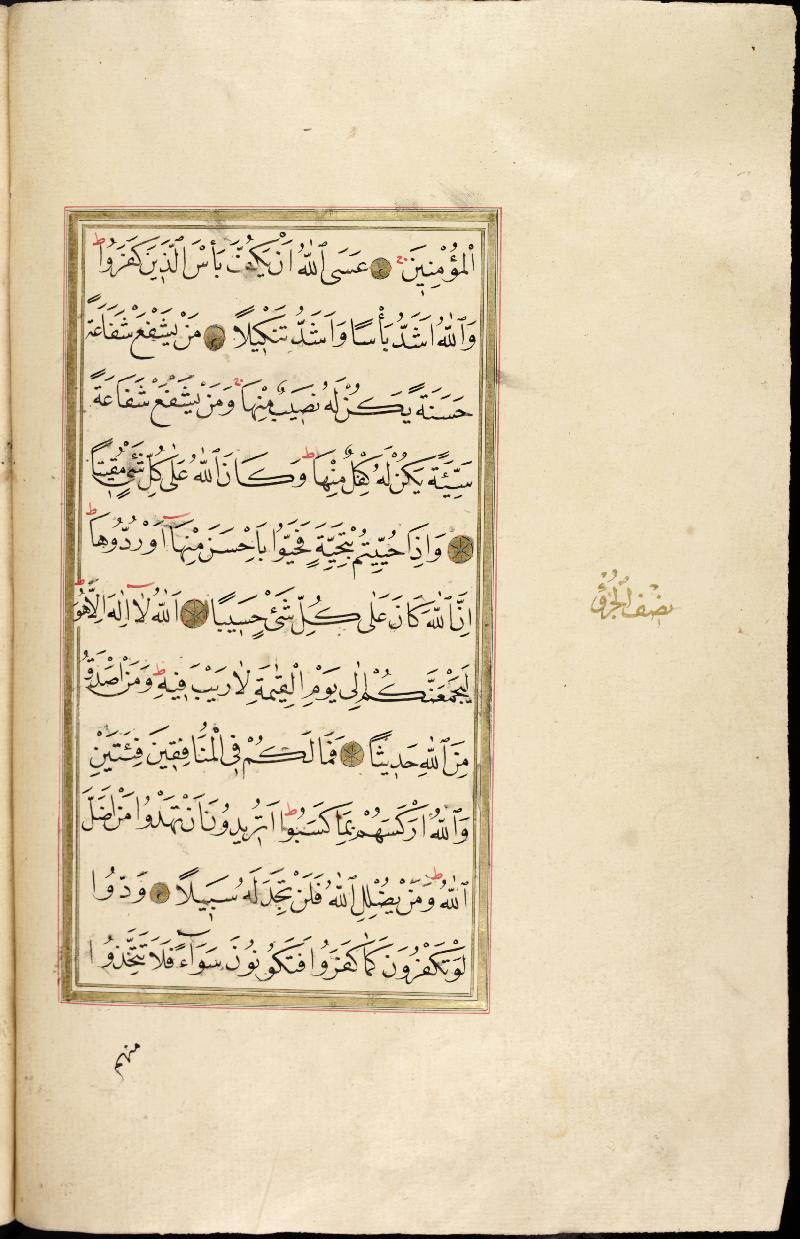 اَلْمُؤْمِنِينَ ج عَسَى اللّٰهُ اَنْ يَكُفَّ بَأْسَ الَّذِينَ كَفَرُوا ط
وَاللّٰهُ اَشَدُّ بَأْسًا وَاَشَدُّ تَنْكِيلًا مَنْ يَشْفَعْ شَفَاعَةً
حَسَنَةً يَكُنْ لَهُ نَصِيبٌ مِنْهَا ج وَمَنْ يَشْفَعْ شَفَاعَةً
سَيِّئَةً يَكُنْ لَهُ كِفْلٌ مِنْهَا ط وَكَانَ اللّٰهُ عَلٰى كُلِّ شَىْءٍ مُقِيتًا
وَاِذَا حُيِّيتُمْ بِتَحِيَّةٍ فَحَيُّوا بِاَحْسَنَ مِنْهَٓا اَوْ رُدُّوهَا ط
اِنَّ اللّٰهَ كَانَ عَلٰى كُلِّ شَىْءٍ حَسِيبًا اَللّٰهُ لَٓا اِلٰهَ اِلَّا هُوَ ط
لَيَجْمَعَنَّكُمْ اِلٰى يَوْمِ الْقِيٰمَةِ لَا رَيْبَ فِيهِ ط وَمَنْ اَصْدَقُ
مِنَ اللّٰهِ حَدِيثًا فَمَا لَكُمْ فِى الْمُنَافِقِينَ فِئَتَيْنِ
وَاللّٰهُ اَرْكَسَهُمْ بِمَا كَسَبُوا ط اَتُرِيدُونَ اَنْ تَهْدُوا مَنْ اَضَلَّ
اللّٰهُ ط وَمَنْ يُضْلِلِ اللّٰهُ فَلَنْ تَجِدَ لَهُ سَبِيلًا وَدُّوا
لَوْ تَكْفُرُونَ كَمَا كَفَرُوا فَتَكُونُونَ سَوَٓاءً فَلَا تَتَّخِذُوا
منهم
نِصْفُ الْجُزْؤِ